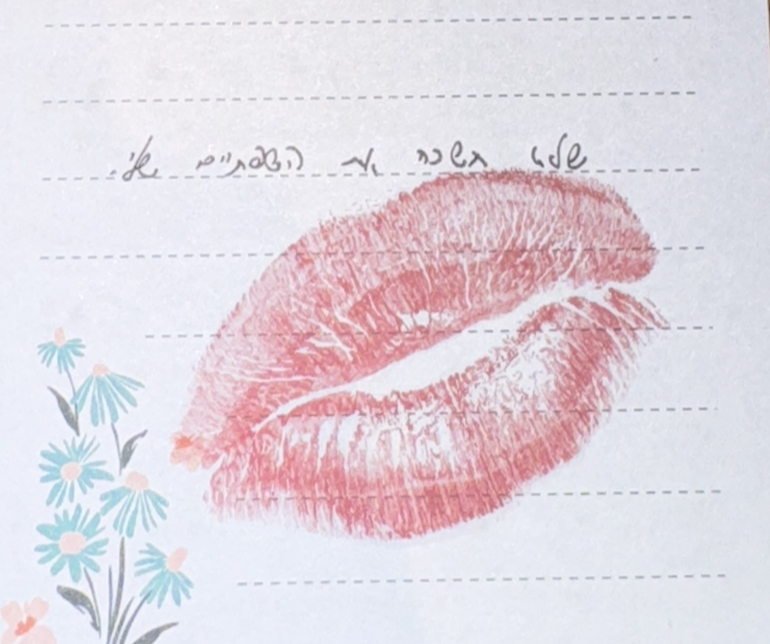 שלא תשכח את השפתיים שלי.